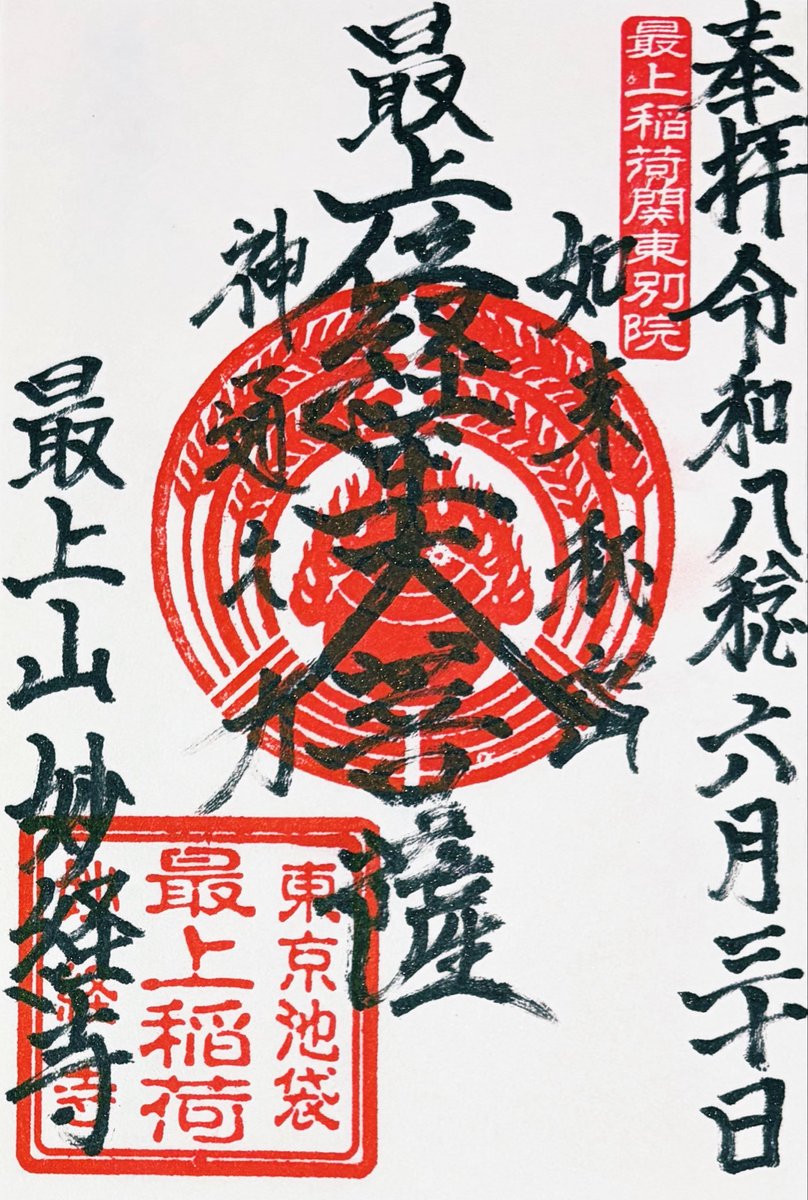 奉拝 令和八稔六月三十日
最上稲荷関東別院
如来秘密
最上位経王大菩薩
神通之力
最上山 妙経寺
東京池袋
最上稲荷
妙經寺